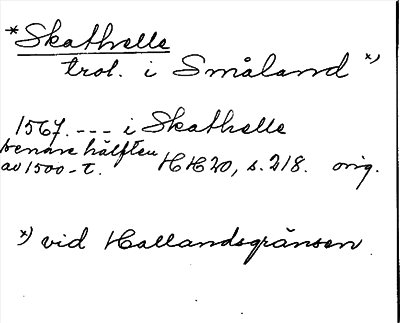 *Skathelle
trol. i Småland *)
1567. --- i Skathelle
senare hälften
av 1500-t. HH 20, s. 218. orig.
*) vid Hallandsgränsen